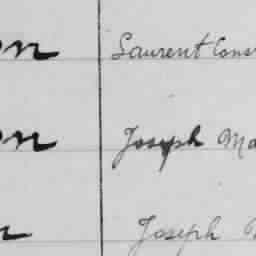 on Laurent Cons
on Joseph Ma
n Joseph